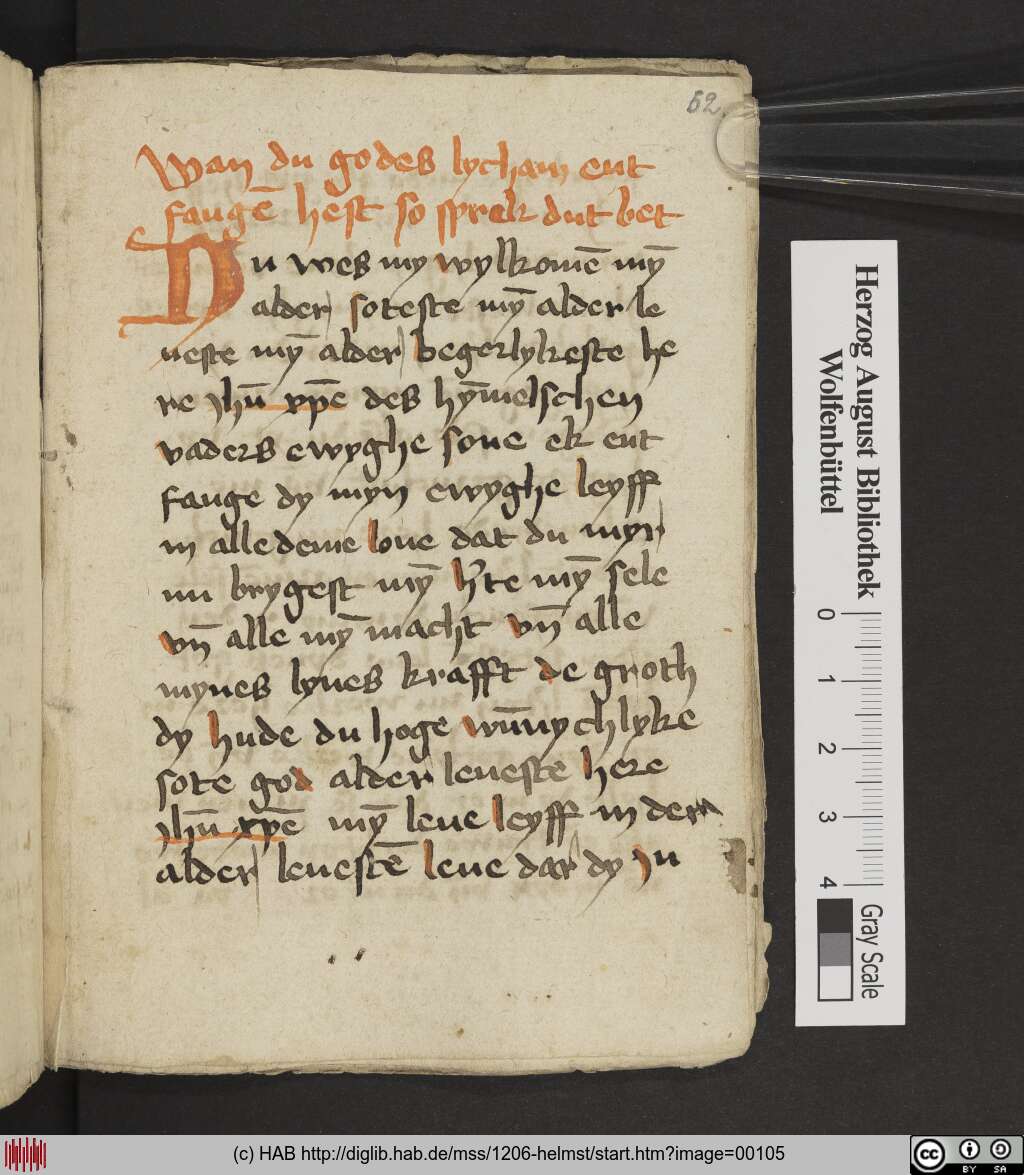 52
Wan du godes lycham ent
fangē hest so sprek dut bet
Du wes my wylkomē mȳ
alder soteste mȳ alder le
ueste mȳ alder begerlykeste he
re ihū xp̄e des hȳmelschen
vaders ewyghe sone ek ent
fange dy myn ewyghe leyff
in alle deme loue dat du myn
brygest mȳ hˀte mȳ sele
vn̄ alle mȳ macht vn̄ alle
mynes lyues krafft de groth
dy hude du hoge wūnychlyke
sote god alder leueste here
ihū xp̄e mȳ leue leyff in der
alder leuestē leue dar dy in
Herzog August Bibliothek
Wolfenbüttel
0 1 2 3 4
Gray Scale
(c) HAB http://diglib.hab.de/mss/1206-helmst/start.htm?image=00105
cc BY SA